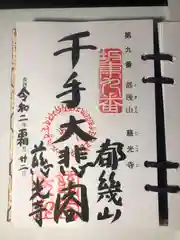 第九番 都幾山 慈光寺
坂東九番
都幾山
千手大悲閣
慈光寺
令和二 霜 廿二